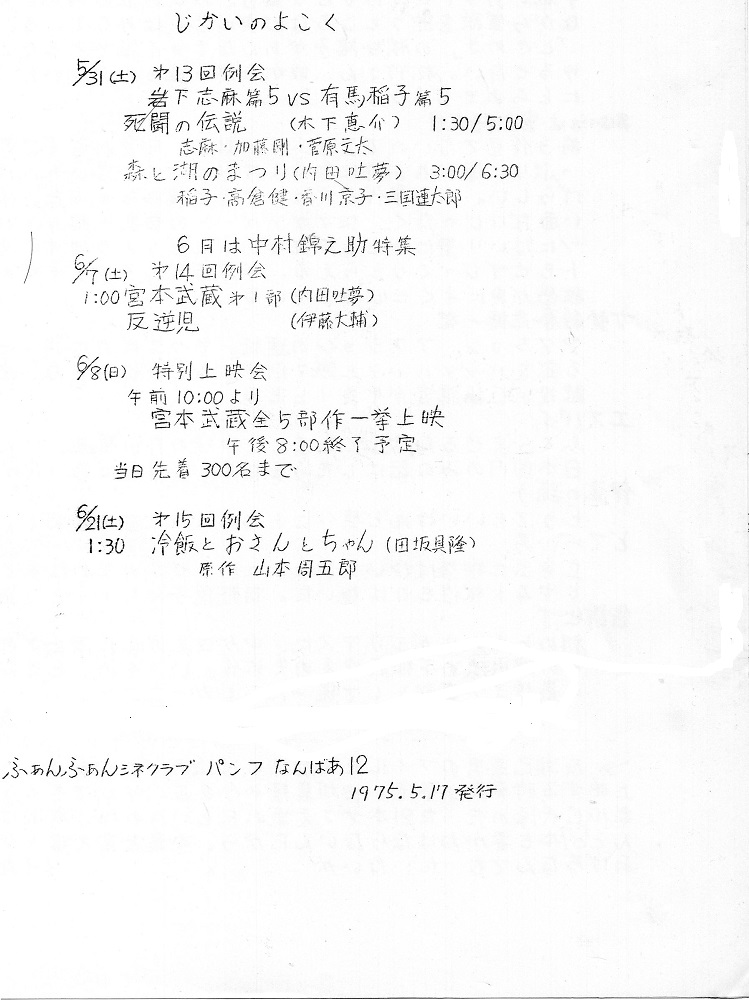 じかいのよこく
5/31(土) 才13回例会
岩下志麻篇5 VS 有馬稲子篇5
死闘の伝説 (木下恵介) 1:30/5:00
志麻・加藤剛・菅原文太
森と湖のまつり(内田吐夢) 3:00/6:30
稲子・高倉健・香川京子・三国連太郎
6月は中村錦之助特集
6/7(土) 才14回例会
1:00 宮本武蔵 才1部 (内田吐夢)
反逆児 (伊藤大輔)
6/8(日) 特別上映会
午前10:00より
宮本武蔵全5部作一挙上映
午後8:00終了予定
当日先着300名まで
6/21(土) 才15回例会
1:30 冷飯とおさんとちゃん (田坂具隆)
原作 山本周五郎
ふぁんふぁんシネクラブ パンフ なんばあ12
1975.5.17発行